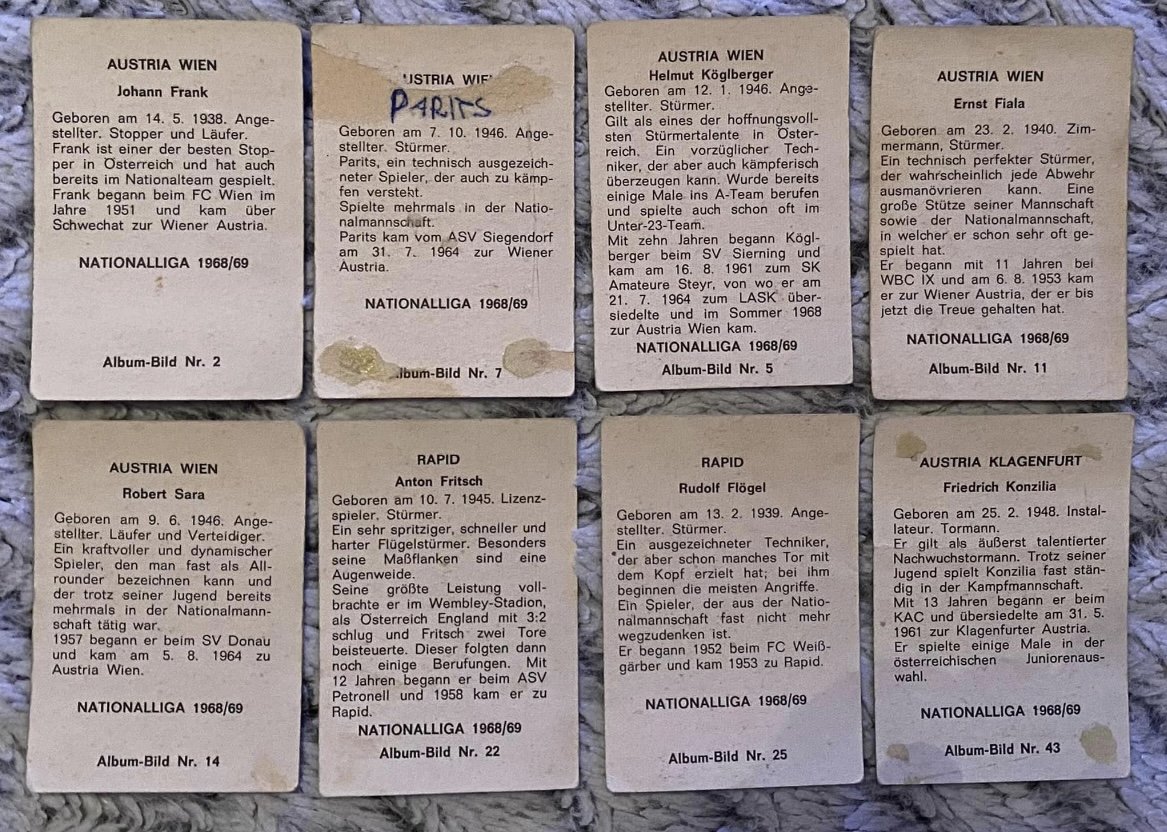 AUSTRIA WIEN
Johann Frank
Geboren am 14. 5. 1938. Ange-
stellter. Stopper und Läufer.
Frank ist einer der besten Stop-
per in Österreich und hat auch
bereits im Nationalteam gespielt.
Frank begann beim FC Wien im
Jahre 1951 und kam über
Schwechat zur Wiener Austria.
NATIONALLIGA 1968/69
Album-Bild Nr. 2
USTRIA WIE
PARITS
Geboren am 7. 10. 1946. Ange-
stellter. Stürmer.
Parits, ein technisch ausgezeich-
neter Spieler, der auch zu kämp-
fen versteht.
Spielte mehrmals in der Natio-
nalmannschaft.
Parits kam vom ASV Siegendorf
am 31. 7. 1964 zur Wiener
Austria.
NATIONALLIGA 1968/69
lbum-Bild Nr. 7
AUSTRIA WIEN
Helmut Köglberger
Geboren am 12. 1. 1946. Ange-
stellter. Stürmer.
Gilt als eines der hoffnungsvoll-
sten Stürmertalente in Öster-
reich. Ein vorzüglicher Tech-
niker, der aber auch kämpferisch
überzeugen kann. Wurde bereits
einige Male ins A-Team berufen
und spielte auch schon oft im
Unter-23-Team.
Mit zehn Jahren begann Kögl-
berger beim SV Sierning und
kam am 16. 8. 1961 zum SK
Amateure Steyr, von wo er am
21. 7. 1964 zum LASK über-
siedelte und im Sommer 1968
zur Austria Wien kam.
NATIONALLIGA 1968/69
Album-Bild Nr. 5
AUSTRIA WIEN
Ernst Fiala
Geboren am 23. 2. 1940. Zim-
mermann, Stürmer.
Ein technisch perfekter Stürmer,
der wahrscheinlich jede Abwehr
ausmanövrieren kann. Eine
große Stütze seiner Mannschaft
sowie der Nationalmannschaft,
in welcher er schon sehr oft ge-
spielt hat.
Er begann mit 11 Jahren bei
WBC IX und am 6. 8. 1953 kam
er zur Wiener Austria, der er bis
jetzt die Treue gehalten hat.
NATIONALLIGA 1968/69
Album-Bild Nr. 11
AUSTRIA WIEN
Robert Sara
Geboren am 9. 6. 1946. Ange-
stellter. Läufer und Verteidiger.
Ein kraftvoller und dynamischer
Spieler, den man fast als All-
rounder bezeichnen kann und
der trotz seiner Jugend bereits
mehrmals in der Nationalmann-
schaft tätig war.
1957 begann er beim SV Donau
und kam am 5. 8. 1964 zu
Austria Wien.
NATIONALLIGA 1968/69
Album-Bild Nr. 14
RAPID
Anton Fritsch
Geboren am 10. 7. 1945. Lizenz-
spieler, Stürmer.
Ein sehr spritziger, schneller und
harter Flügelstürmer. Besonders
seine Maßflanken sind eine
Augenweide.
Seine größte Leistung voll-
brachte er im Wembley-Stadion,
als Österreich England mit 3:2
schlug und Fritsch zwei Tore
beisteuerte. Dieser folgten dann
noch einige Berufungen. Mit
12 Jahren begann er beim ASV
Petronell und 1958 kam er zu
Rapid.
NATIONALLIGA 1968/69
Album-Bild Nr. 22
RAPID
Rudolf Flögel
Geboren am 13. 2. 1939. Ange-
stellter. Stürmer.
Ein ausgezeichneter Techniker,
der aber schon manches Tor mit
dem Kopf erzielt hat; bei ihm
beginnen die meisten Angriffe.
Ein Spieler, der aus der Natio-
nalmannschaft fast nicht mehr
wegzudenken ist.
Er begann 1952 beim FC Weiß-
gärber und kam 1953 zu Rapid.
NATIONALLIGA 1968/69
Album-Bild Nr. 25
AUSTRIA KLAGENFURT
Friedrich Konzilia
Geboren am 25. 2. 1948. Instal-
lateur. Tormann.
Er gilt als äußerst talentierter
Nachwuchstormann. Trotz seiner
Jugend spielt Konzilia fast stän-
dig in der Kampfmannschaft.
Mit 13 Jahren begann er beim
KAC und übersiedelte am 31. 5.
1961 zur Klagenfurter Austria.
Er spielte einige Male in der
österreichischen Juniorenaus-
wahl.
NATIONALLIGA 1968/69
Album-Bild Nr. 43